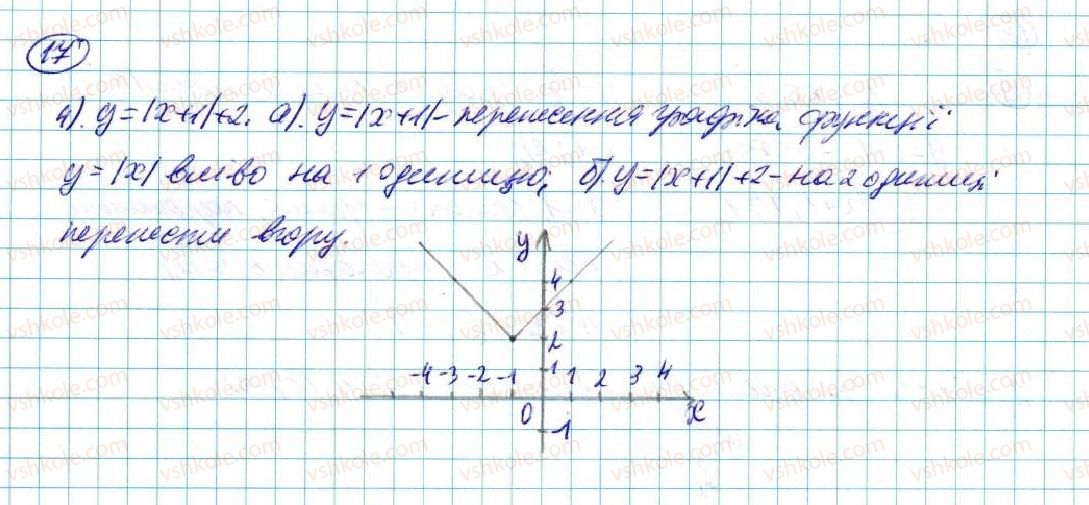 17
4). y=|x+1|+2. а). y=|x+1|- перенесення графіка функції
y=|x| вліво на 1 одиницю; б) y=|x+1|+2 - на 2 одиниці
перенести вгору.
y
4
3
2
-4 -3 -2 -1 1 1 2 3 4
0 x
-1